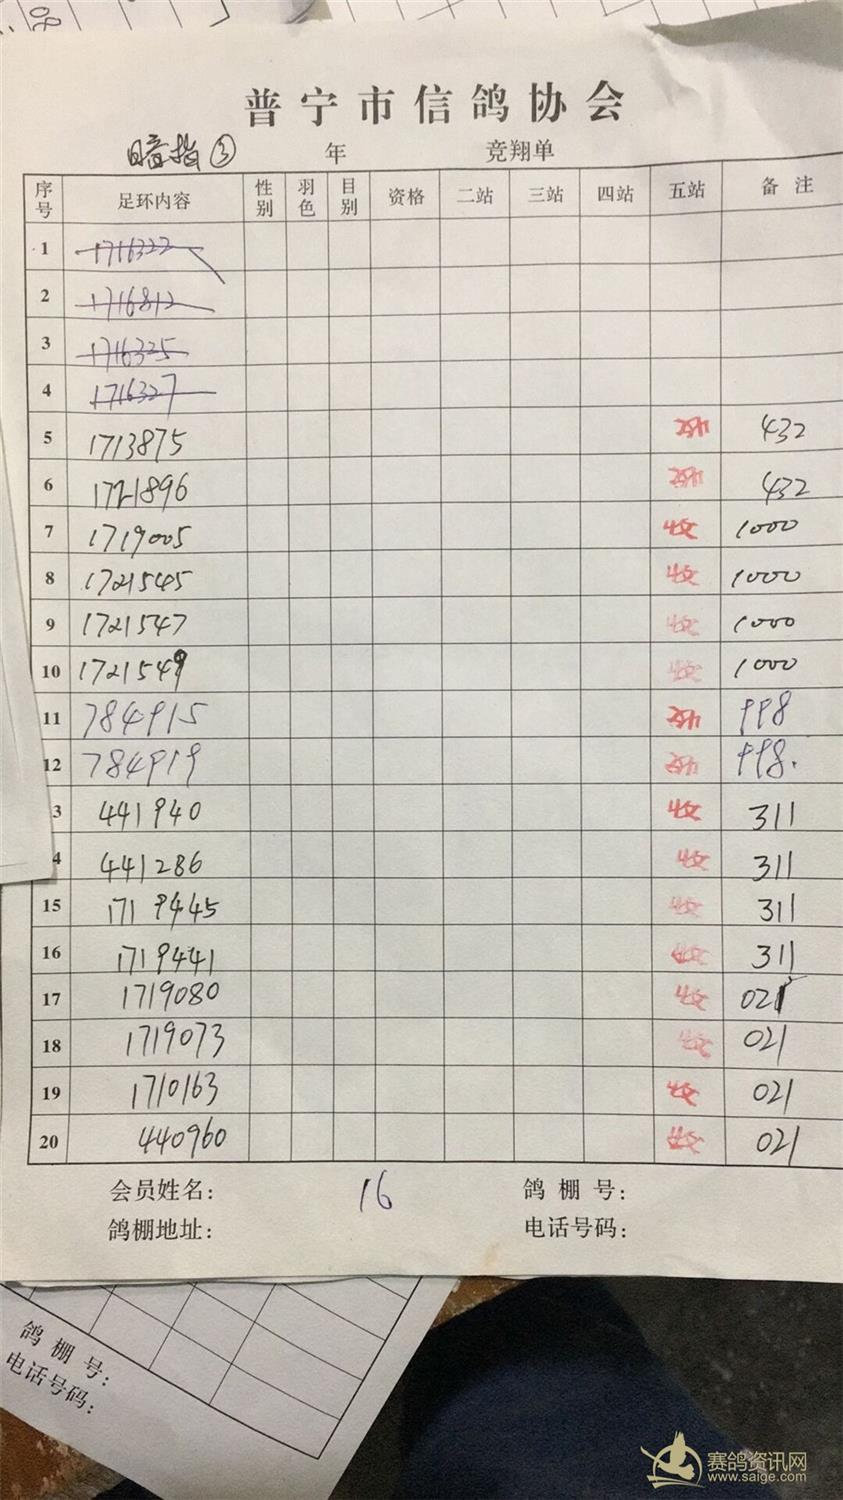 普宁市信鸽协会
暗指③ 年 竞翔单
序号 足环内容 性别 羽色 目别 资格 二站 三站 四站 五站 备注
1 1716322
2 1716812
3 1716325
4 1716327
5 1713875 收 432
6 1721896 收 432
7 1719005 收 1000
8 1721545 收 1000
9 1721547 收 1000
10 1721549 收 1000
11 784915 收 998
12 784919 收 998.
3 441940 收 311
4 441286 收 311
15 1719445 收 311
16 1719441 收 311
17 1719080 收 021
18 1719073 收 021
19 1710163 收 021
20 440960 收 021
会员姓名: 16 鸽棚号:
鸽棚地址: 电话号码:
鸽棚号:
电话号码:
赛鸽资讯网
www.saige.com